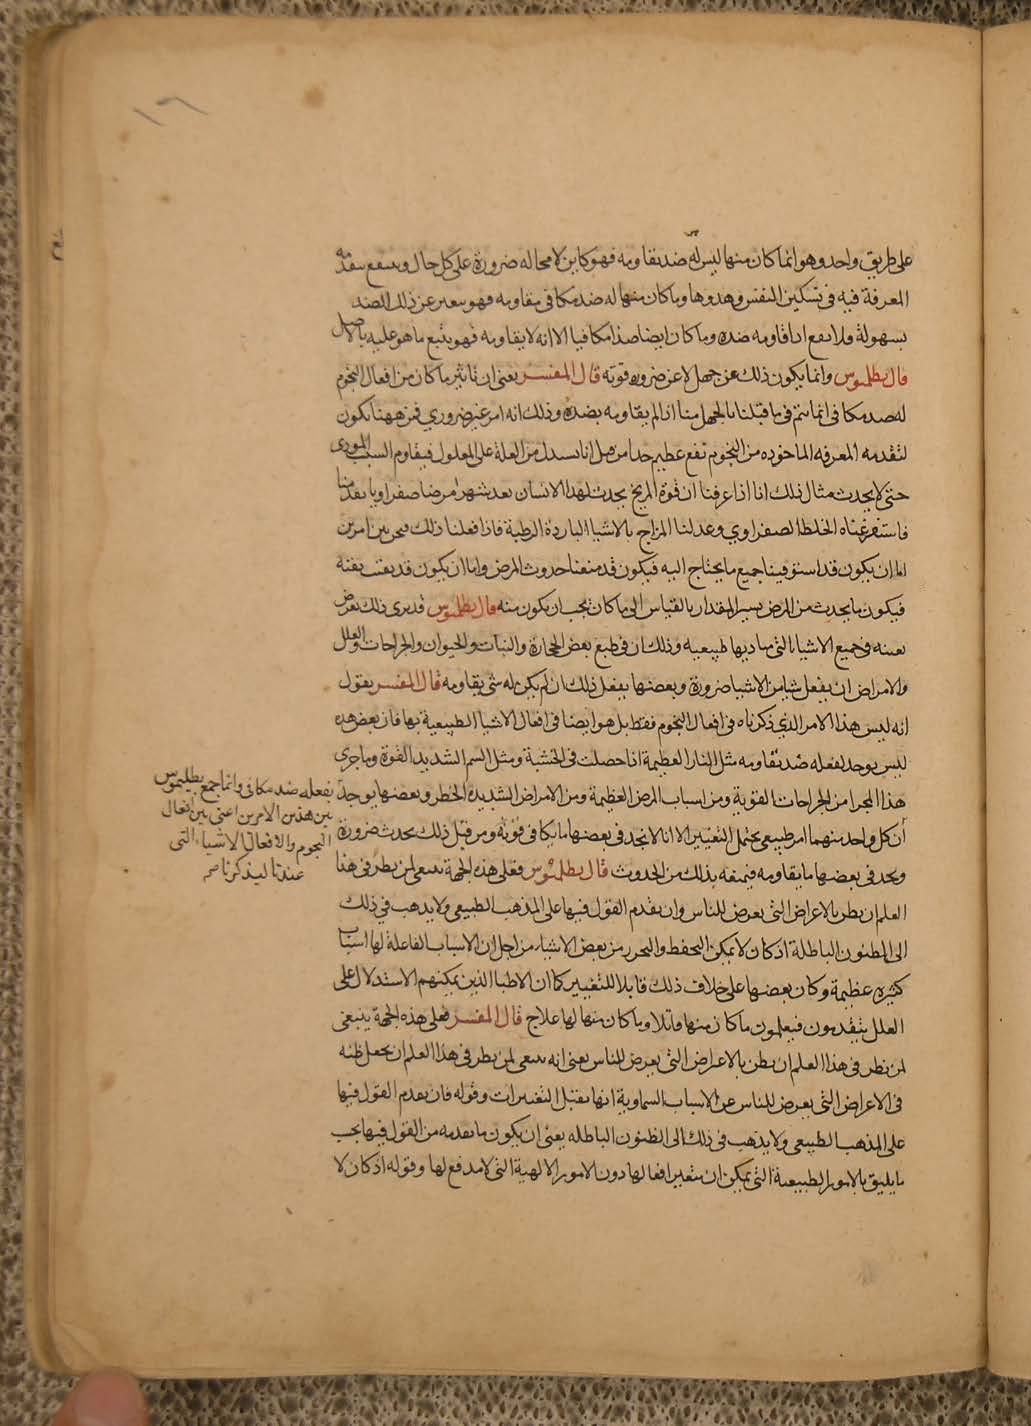 على طريق واحد وهو انما كان منها ليس له ضد يقاومه فهو كاين لا محاله ضرورة على كل حال وينتفع بتقدمه
المعرفة فيه في تسكين النفس وهدوها وما كان منها له ضد مكافى يقاومه فهو يتغير عن ذلك الضد
بسهولة ولا يقع اذا قاومه ضده وما كان ايضا ضدا مكافيا الا انه لا يقاومه فهو يتبع ما هو عليه بالاصل
قال بطلميوس وانما يكون ذلك عن جهل لا عن ضروره قوته قال المفسر يعنى ان تاثير ما كان من افعال النجوم
له ضد مكافى انما يتم فى ما قبلنا بالجهل منا اذا لم يقاومه بضده وذلك انه امر غير ضروري فمن ههنا يكون
لتقدمه المعرفه الماخوده من النجوم نفع عظيم جدا من قبل انا نستدل من العلة على المعلول فيقاوم السبب المودى
حتى لا يحدث مثال ذلك انا اذا عرفنا ان قوة المريخ يحدث لهذا الانسان بعد شهر امرضا صفراويا تقدمنا
فاستفرغناه الخلط الصفراوي وعدلنا المزاج بالاشيا الباردة الرطبة فاذا فعلنا ذلك فنحن بين امرين
اما ان يكون قد استوفينا جميع ما يحتاج اليه فيكون قد منعنا حدوث المرض واما ان يكون قد بقيت بقيه
فيكون ما يحدث من المرض يسير المقدار بالقياس الى ما كان يجب ان يكون منه قال بطلميوس قد يرى ذلك يعرض
بعينه فى جميع الاشيا التى مباديها طبيعيه وذلك ان فى طبع بعض الحجارة والنبات والحيوان والجراحات والعلل
والامراض ان يفعل شيا من الاشيا ضرورة وبعضها يفعل ذلك ان لم يكن له شى يقاومه قال المفسر يقول
انه ليس هذا الامر الذي ذكرناه فى افعال النجوم فقط بل هو ايضا فى افعال الاشيا الطبيعية بها فان بعض هذه
ليس يوجد لفعله ضد يقاومه مثل النار العظيمة اذا حصلت فى الخشبة ومثل السم الشديد القوة وما جرى
هذا المجرا من الجراحات القوية ومن اسباب المرض العظيمة ومن الامراض الشديدة الخطر وبعضها يوجد
يفعله ضد مكافى وانما جمع بطلميوس
بين هذين الامرين اعنى بين افعال
النجوم والافعال الاشياء التى
عندنا ليذكرنا صح
أن كل واحد منهما امر طبيعى يحتمل التغيير الا انا لا نجد فى بعضها ما يكافى قوته ومن قبل ذلك يحدث ضرورة
ونجد فى بعضها ما يقاومه فيمنعه بذلك من الحدوث قال بطلميوس فعلى هذه الجهة ينبغى لمن نظر فى هذا
العلم ان ينظر بالاعراض التى يعرض للناس وان يقدم القول فيها على المذهب الطبيعى ولا يذهب في ذلك
الى الظنون الباطلة اذ كان لا يمكن التحفظ والتحرز من بعض الاشياء من اجل ان الاسباب الفاعلة لها اسباب
كثيره عظيمة وكان بعضها على خلاف ذلك قابلا للتغيير كما ان الاطبا الذين يمكنهم الاستدلال على
العلل يتقدمون فيعلمون ما كان منها قاتلا وما كان منها لها علاج قال المفسر فعلى هذه الجهة ينبغى
لمن نظر فى هذا العلم ان يظن بالاعراض التى يعرض للناس يعنى انه ينبغى لمن نظر فى هذا العلم ان يجعل ظنه
فى الاعراض التى يعرض للناس عن الاسباب السماوية انها يقبل التغييرات وقوله فان يقدم القول فيها
على المذهب الطبيعى ولا يذهب فى ذلك الى الظنون الباطله يعنى ان يكون ما يقدمه من القول فيها بحسب
ما يليق بالامور الطبيعية التى يمكن ان يتغير افعالها دون الامور الالهية التى لا مدفع لها وقوله اذ كان لا